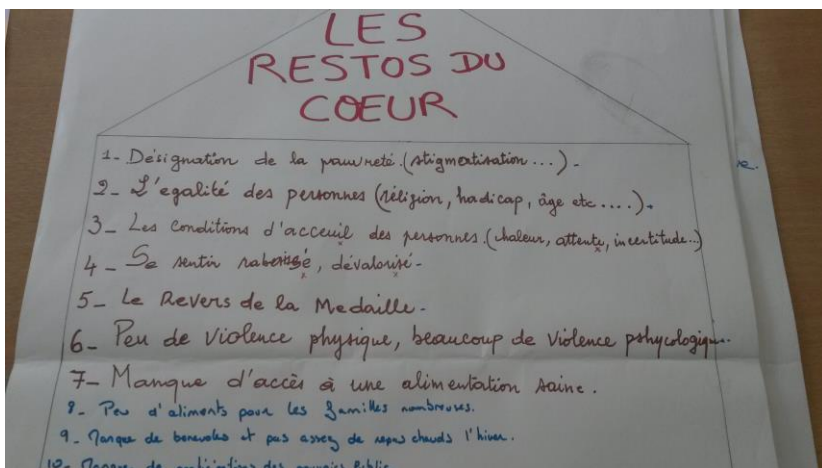 LES
RESTOS DU
COEUR
1- Désignation de la pauvreté. (stigmatisation ...) -
2- L'egalité des personnes (réligion, hadicap, âge etc ....).
3- Les conditions d'acceuil des personnes. (chaleur, attente, incertitude...)
4- Se sentir, dévalorisé-
5- Le Revers de la Medaille-
6- Peu de violence physique, beaucoup de violence pshycologique.
7- Manque d'accès à une alimentation saine.
8- Peu d'aliments pour les familles nombreuses.
9- Manque de benevoles et pas assez de repas chauds l'hiver.
10- Manque de des